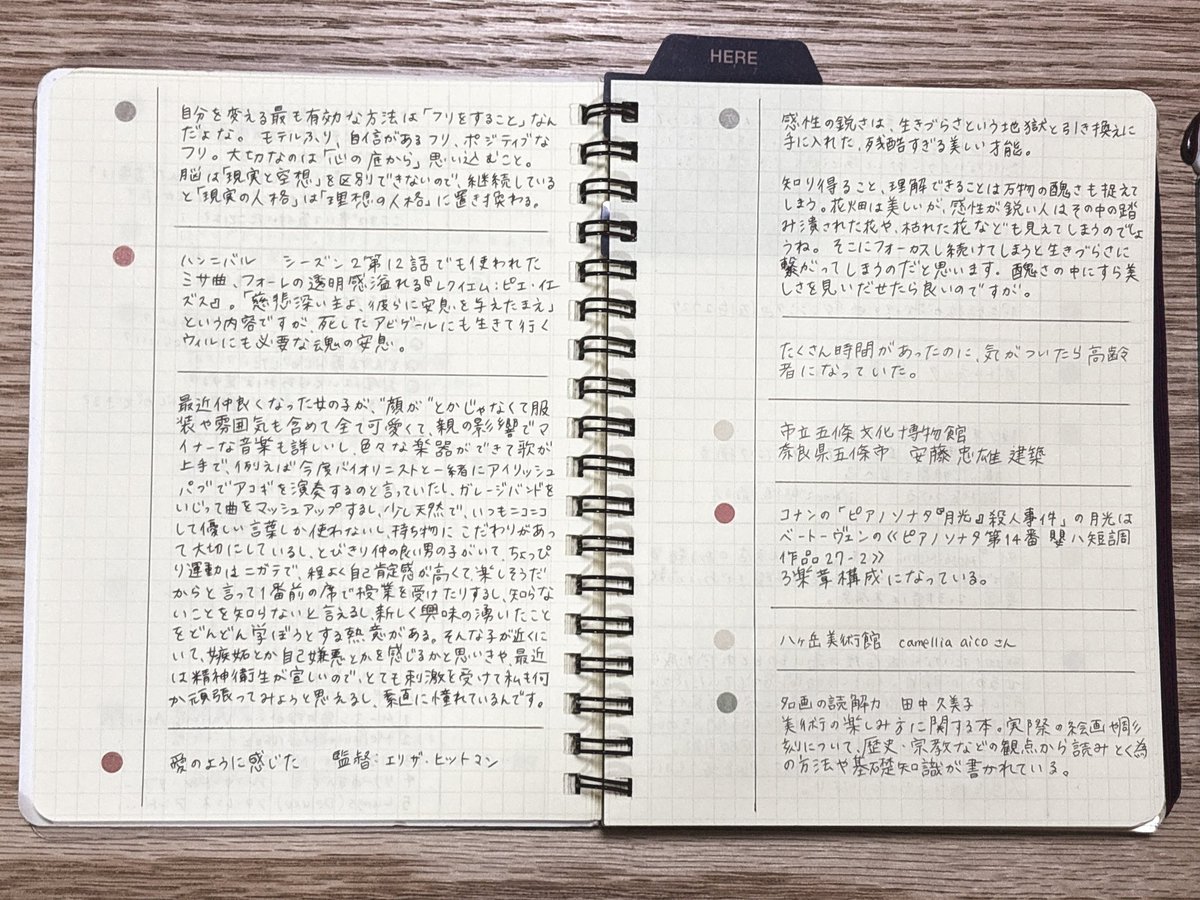 自分を変える最も有効な方法は「フリをすること」なん
だよな。モテルふり、自信があるフリ、ポジティブな
フリ。大切なのは「心の底から」思い込むこと。
脳は「現実と空想」を区別できないので、継続している
と「現実の人格」は「理想の人格」に置き換わる。
ハンニバル シーズン2第12話でも使われた
ミサ曲、フォーレの透明感溢れる『レクイエム:ピエ・イエ
ズス』。「慈悲深い主よ、彼らに安息を与えたまえ」
という内容ですが、死したアビゲールにも生きて行く
ウィルにも必要な魂の安息。
最近仲良くなった女の子が、"顔が"とかじゃなくて服
装や雰囲気も含めて全て可愛くて、親の影響でマ
イナーな音楽も詳しいし、色々な楽器ができて歌が
上手で、例えば今度バイオリニストと一緒にアイリッシュ
パブでアコギを演奏するのと言っていたし、ガレージバンドを
いじって曲をマッシュアップするし、少し天然で、いつもニコニコ
して優しい言葉しか使わないし、持ち物にこだわりがあっ
て大切にしているし、とびきり仲の良い男の子がいて、ちょっぴ
り運動はニガテで、程よく自己肯定感が高くて、楽しそうだ
からと言って1番前の席で授業を受けたりするし、知らな
いことを知らないと言えるし、新しく興味の湧いたこと
をどんどん学ぼうとする熱意がある。そんな子が近くに
いて、嫉妬とか自己嫌悪とかを感じるかと思いきや、最近
は精神衛生が宜しいので、とても刺激を受けて私も何
か頑張ってみようと思えるし、素直に憧れているんです。
愛のように感じた 監督:エリザ・ヒットマン
HERE
感性の鋭さは、生きづらさという地獄と引き換えに
手に入れた、残酷すぎる美しい才能。
知り得ること、理解できることは万物の醜さも捉えて
しまう。花畑は美しいが、感性が鋭い人はその中の踏
み潰された花や、枯れた花なども見えてしまうのでしょ
うね。そこにフォーカスし続けてしまうと生きづらさに
繋がってしまうのだと思います。醜さの中にすら美
しさを見いだせたら良いのですが。
たくさん時間があったのに、気がついたら高齢
者になっていた。
市立五條文化博物館
奈良県五條市 安藤忠雄建築
コナンの「ピアノソナタ『月光』殺人事件」の月光は
ベートーヴェンの《ピアノソナタ第14番 嬰ハ短調
作品27-2》
3楽章構成になっている。
八ヶ岳美術館 camellia aicoさん
名画の読解力 田中久美子
美術の楽しみ方に関する本。実際の絵画や彫
刻について、歴史・宗教などの観点から読みとく為
の方法や基礎知識が書かれている。